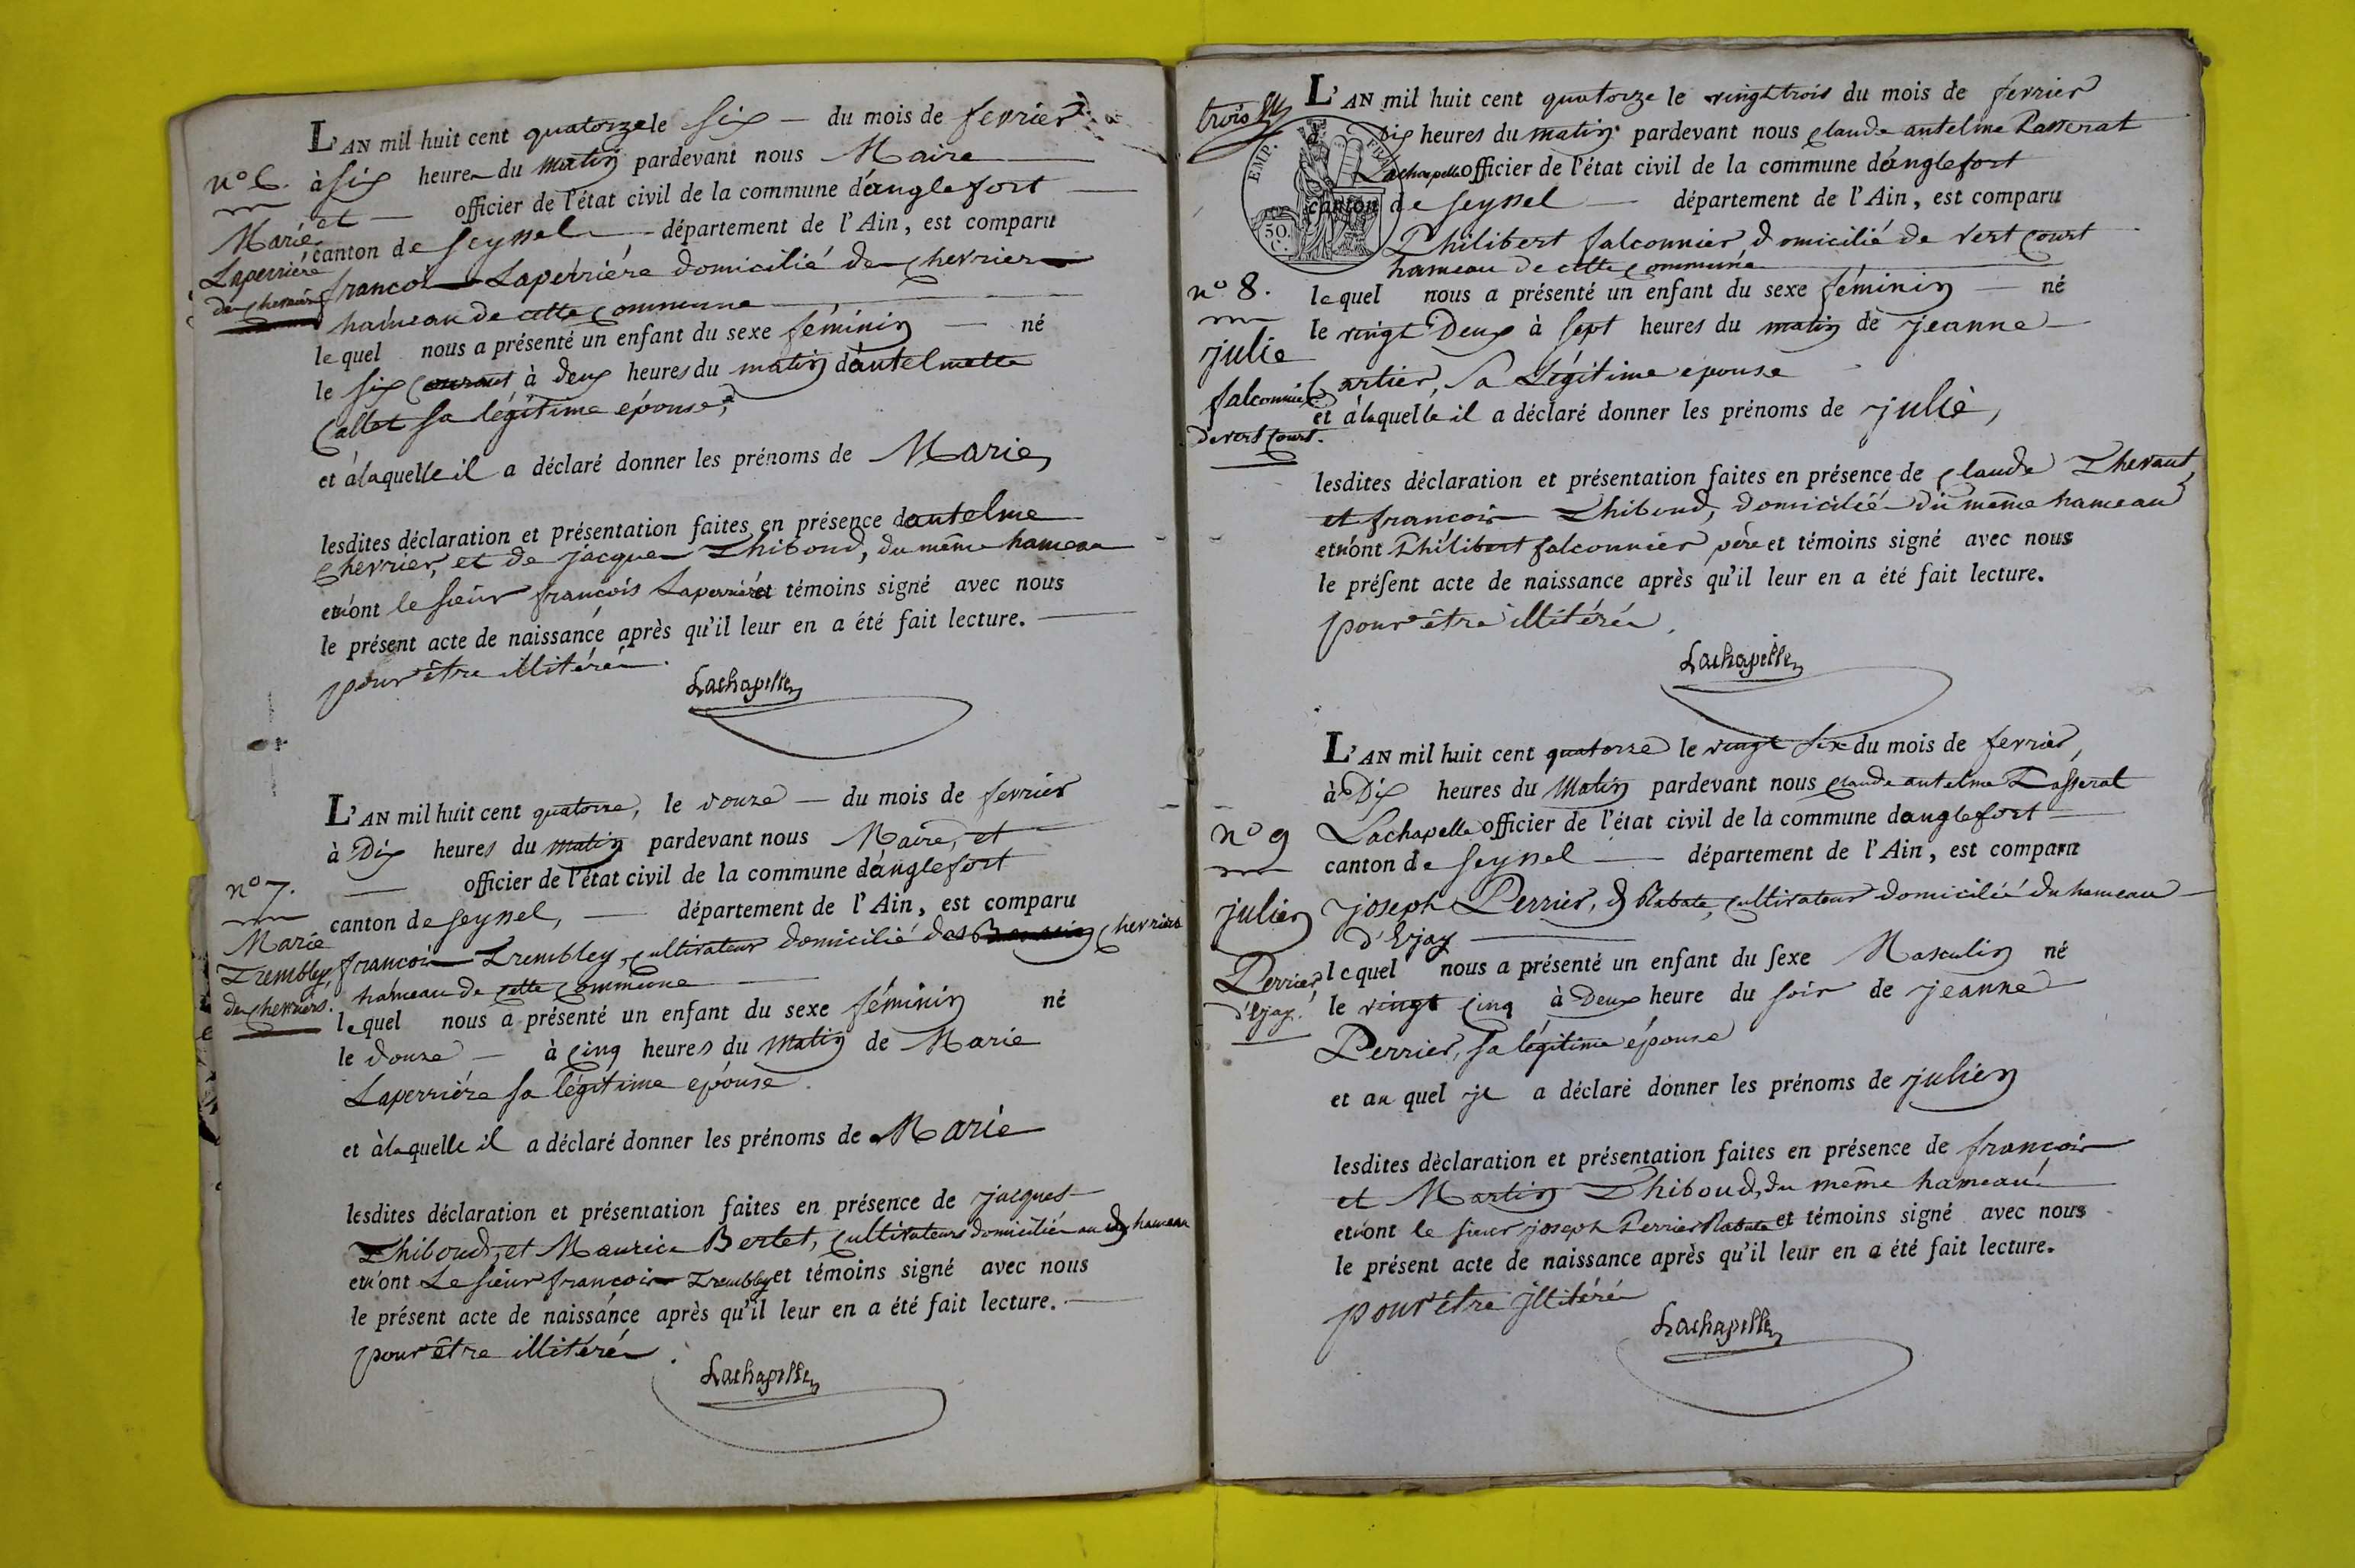 L'AN mil huit cent quatorze le six — du mois de fevrier
n° 6. à six heures du matin pardevant nous Maire
et — officier de l'état civil de la commune d'anglefort
canton de seyssel — département de l'Ain, est comparu
Marie
Laperrière
de chevrier
francois Laperriére domicilié de chevrier
hameau de cette commune
lequel nous a présenté un enfant du sexe féminin — né
le six courant à deux heures du matin d'antelmette
Callet sa légitime épouse,
et à laquelle il a déclaré donner les prénoms de Marie,
lesdites déclaration et présentation faites en présence d'antelme
chevrier, et de jacques Thiboud, du même hameau
et n'ont le sieur francois Laperriére et témoins signé avec nous
le présent acte de naissance après qu'il leur en a été fait lecture.
pour être illitérés.
Lachapelle
L'AN mil huit cent quatorze, le douze — du mois de fevrier
à Dix heures du matin pardevant nous Maire, et
n° 7. — officier de l'état civil de la commune d'anglefort
canton de seyssel, — département de l'Ain, est comparu
Marie
Trembley,
de chevriers.
francois Trembley, cultivateur domicilié des chevriers
hameau de cette commune
lequel nous a présenté un enfant du sexe féminin né
le douze — à cinq heures du matin de Marie
Laperriére sa légitime epouse.
et à laquelle il a déclaré donner les prénoms de Marie
lesdites déclaration et présentation faites en présence de jacques
Thiboud, et Maurice Berlet, cultivateurs domiciliés au dit hameau
et n'ont Le sieur francois Trembley et témoins signé avec nous
le présent acte de naissance après qu'il leur en a été fait lecture.
pour être illitérés.
Lachapelle
trois
EMP. FRA
50. C.
L'AN mil huit cent quatorze le vingt trois du mois de fevrier
à Dix heures du matin pardevant nous claude antelme Passerat
Lachapelle officier de l'état civil de la commune d'anglefort
canton de seyssel — département de l'Ain, est comparu
Philibert falconnier domicilié de vert court
hameau de cette commune
n° 8. lequel nous a présenté un enfant du sexe féminin — né
le vingt Deux à sept heures du matin de jeanne
julie
falconnier
de vert court.
Cartier, sa Légitime épouse
et à laquelle il a déclaré donner les prénoms de julie,
lesdites déclaration et présentation faites en présence de claude Thevant,
et francois Thiboud, domiciliés du même hameau
et n'ont Philibert falconnier père et témoins signé avec nous
le présent acte de naissance après qu'il leur en a été fait lecture.
pour être illitérés.
Lachapelle
L'AN mil huit cent quatorze le vingt six du mois de fevrier,
à Dix heures du Matin pardevant nous claude antelme Passerat
n° 9 Lachapelle officier de l'état civil de la commune d'anglefort
canton de seyssel — département de l'Ain, est comparu
julien
Perrier,
d'Ejay.
joseph Perrier, dt Rabate, cultivateur domicilié du hameau
d'Ejay
lequel nous a présenté un enfant du sexe Masculin né
le vingt cinq à Deux heure du soir de jeanne
Perrier, sa légitime épouse
et au quel il a déclaré donner les prénoms de julien
lesdites déclaration et présentation faites en présence de francois
et Martin Thiboud, du même hameau
et n'ont le sieur joseph Perrier Rabate et témoins signé avec nous
le présent acte de naissance après qu'il leur en a été fait lecture.
pour être illitérés
Lachapelle